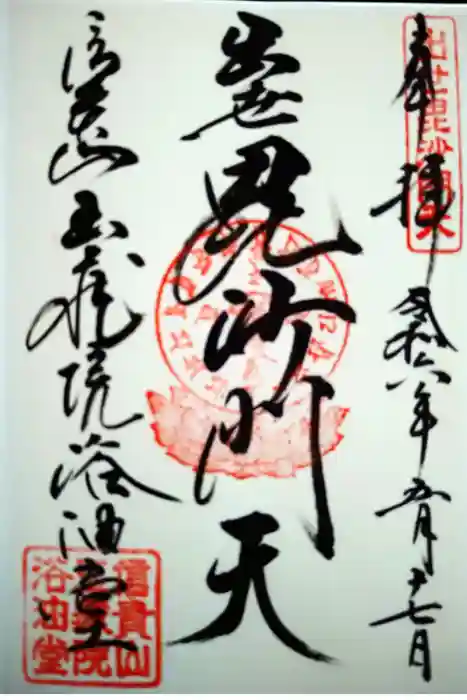 奉拝 令和六年五月十七日
出世毘沙門天
出世毘沙門天
信貴山 玉蔵院浴油堂
信貴山
玉蔵院
浴油堂